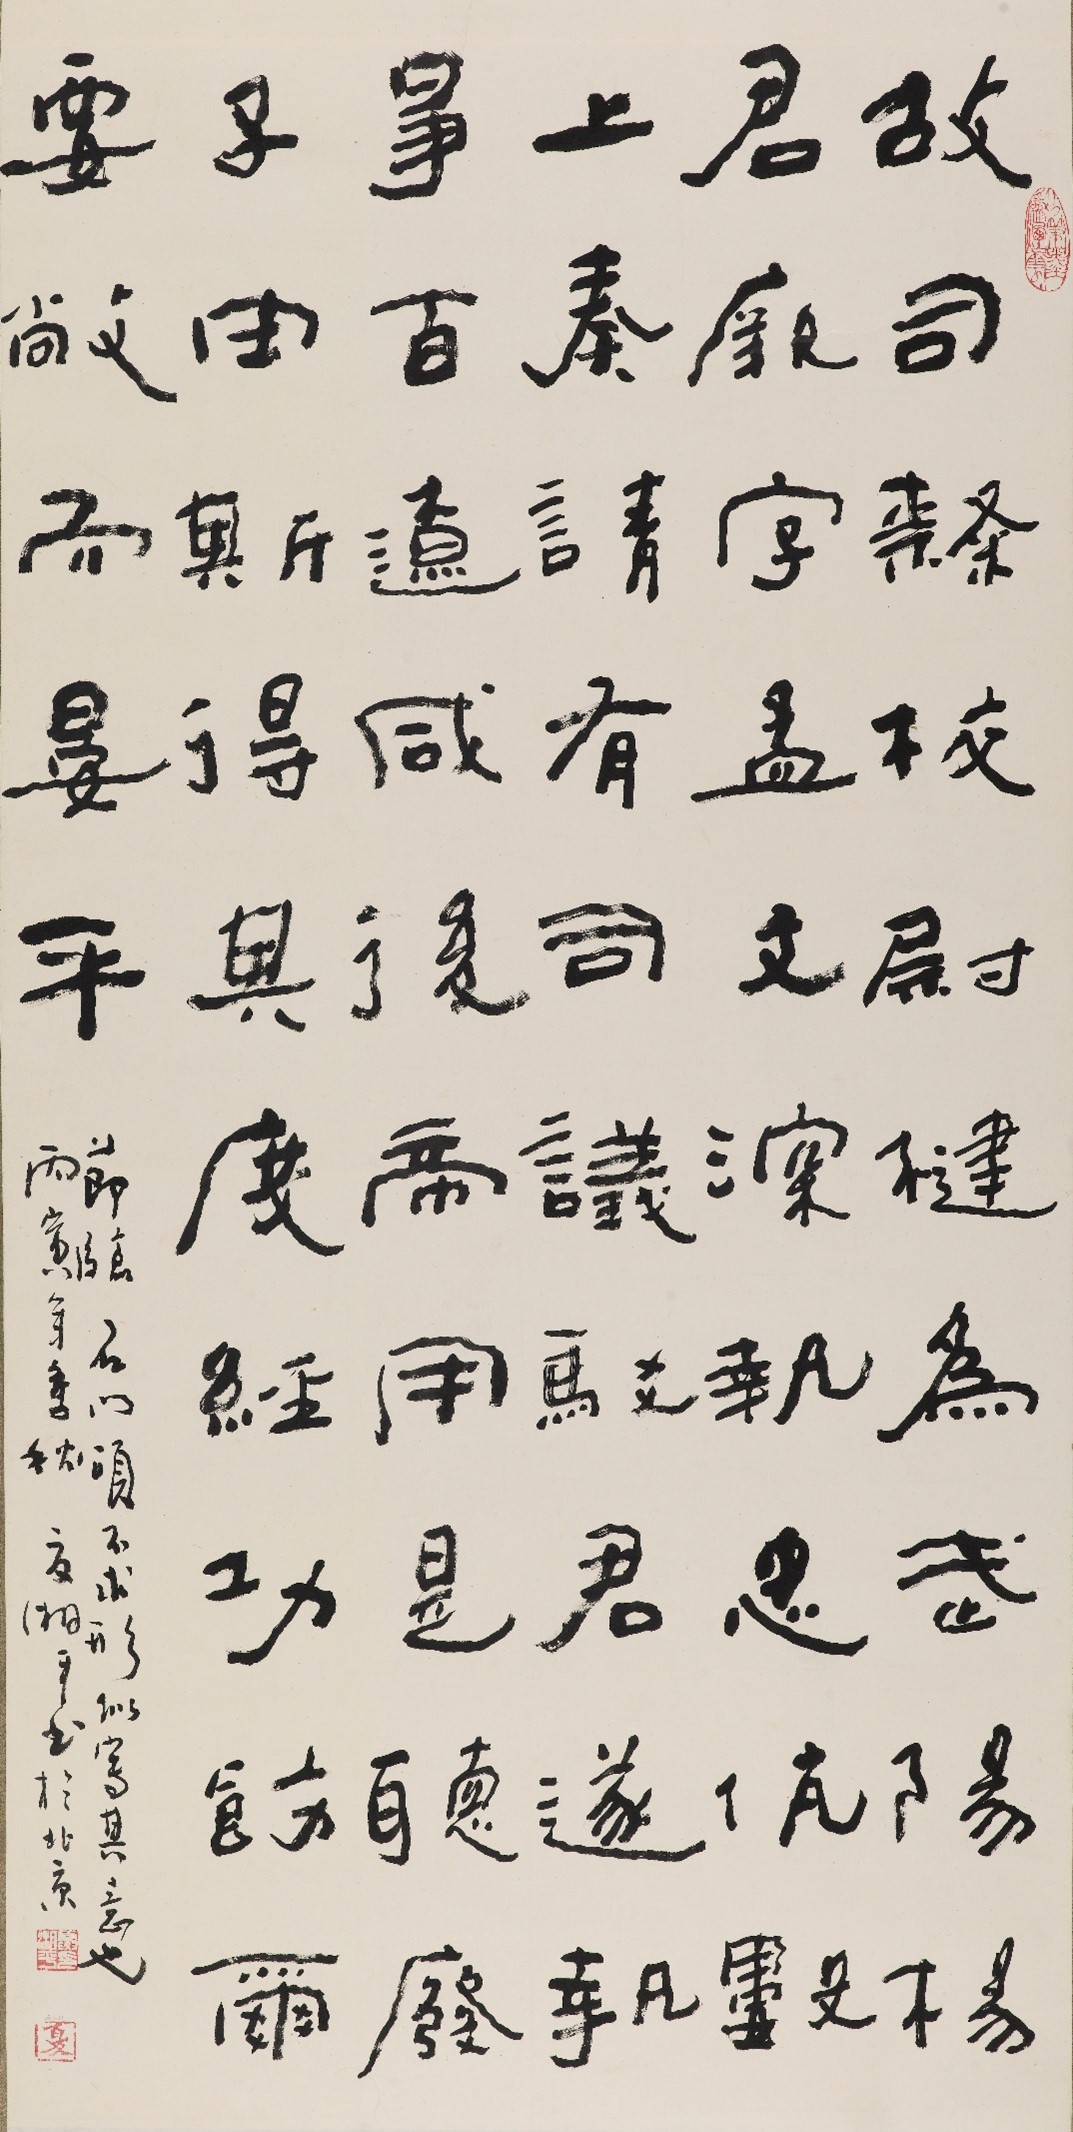 故司隸校尉楗為武陽楊
君厥字孟文深執忠伉數
上奏請有司議駮君遂執
爭百遼咸從帝用是聽廢
子由斯得其度經功飭爾
要敞而晏平
節臨石門頌不求形似寫其意也
丙寅年季秋夏湘平書於北京
夏